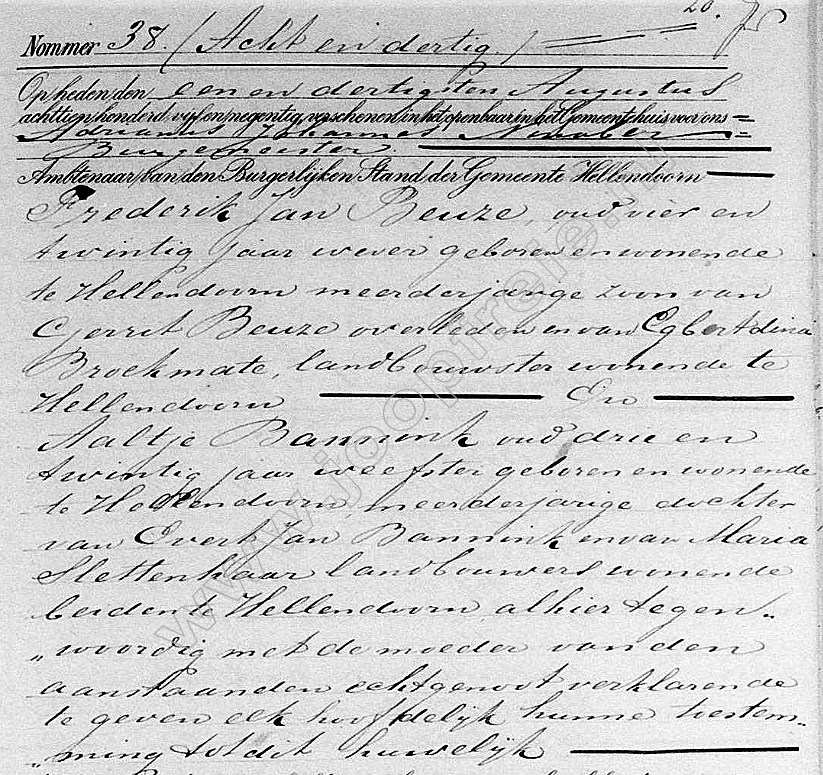 20.
Nommer 38. (Acht en dertig.)
Op heden den een en dertigsten Augustus
achttien honderd vijf en negentig, verschenen in het openbaar in het Gemeentehuis voor ons
Adrianus Johannes
Burgemeester.
Ambtenaar van den Burgerlijken Stand der Gemeente Hellendoorn
Frederik Jan Beuze, oud vier en
twintig jaar wever geboren en wonende
te Hellendoorn meerderjarige zoon van
Gerrit Beuze overleden en van Egbertdina
Broekmate, landbouwster wonende te
Hellendoorn En
Aaltje Bannink oud drie en
twintig jaar weefster geboren en wonende
te Hellendoorn, meerderjarige dochter
van Evert Jan Bannink en van Maria
Slettenhaar landbouwers wonende
beiden te Hellendoorn, alhier tegen-
„woordig met de moeder van den
aanstaanden echtgenoot verklarende
te geven elk hoofdelijk hunne toestem-
„ming tot dit huwelijk